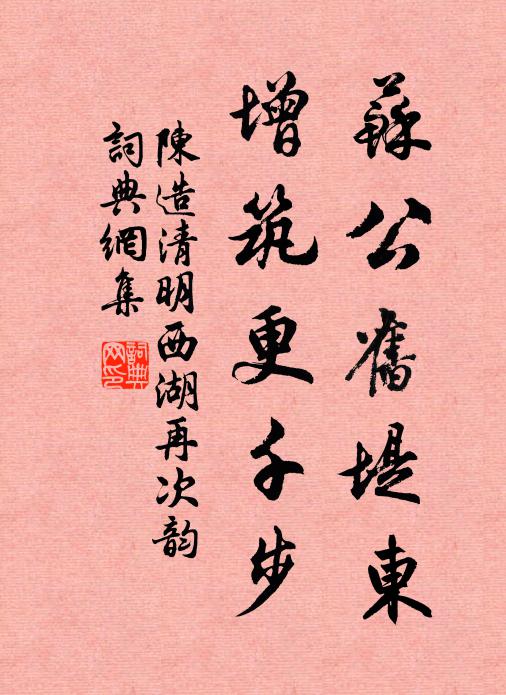 蘇公舊堤東
增筑更千步
陳造清明西湖再次韵
詞典網集
詞典網印